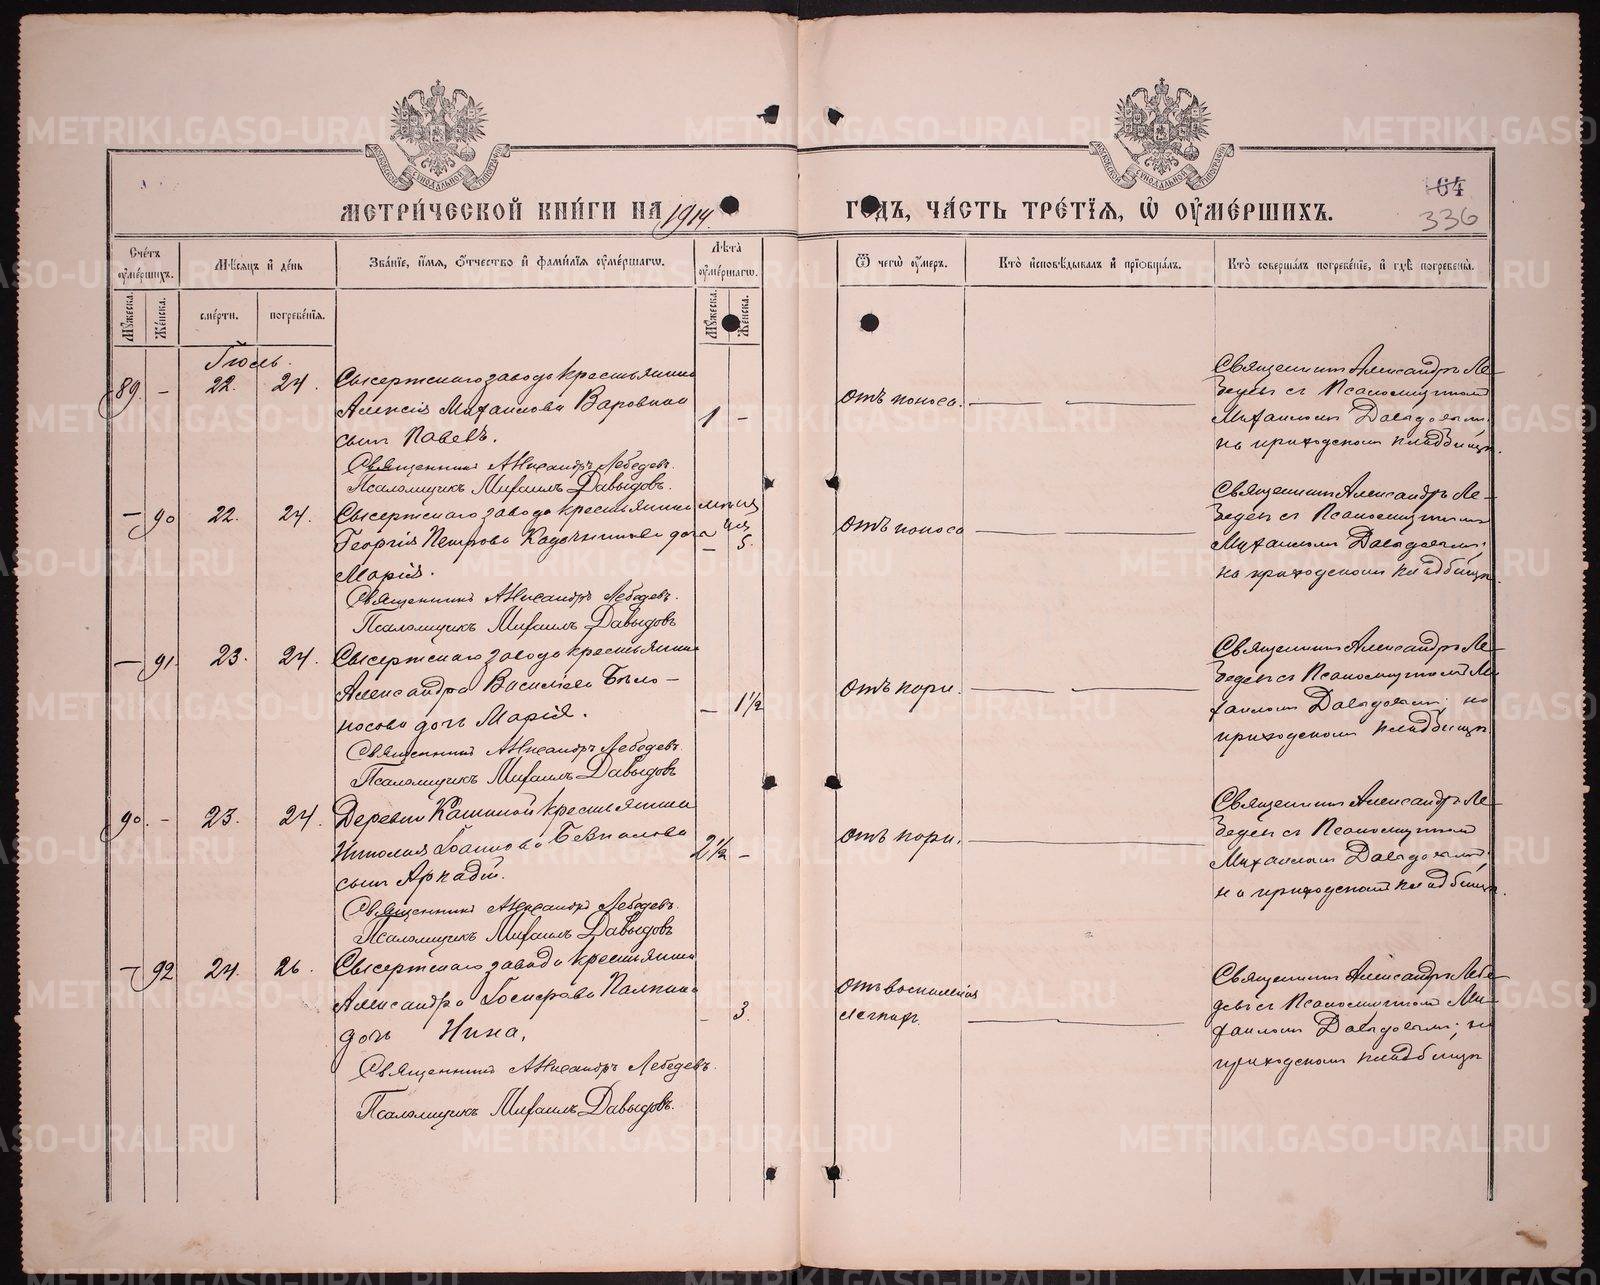 МЕТРИЧЕСКОЙ КНИГИ НА 1914 ГОДЪ, ЧАСТЬ ТРЕТІЯ, Ѡ ОУМЕРШИХЪ.
164
336
Счетъ оумершихъ.
Мѣсяцъ и день
Званіе, имя, отчество и фамилія оумершагѡ.
Лѣта оумершагѡ.
Ѿ чегѡ оумеръ.
Кто исповѣдывалъ и пріобщалъ.
Кто совершалъ погребеніе, и гдѣ погребены.
Мужеска.
Женска.
смерти.
погребенія.
Мужеска.
Женска.
Іюль.
89. - 22. 24. Сысертскаго завода крестьянина
Алексія Михаилова
сынъ Павелъ.
1 -
отъ поноса.
Священникъ Александръ Ле-
бедевъ съ Псаломщикомъ
Михаиломъ Давыдовымъ;
на приходскомъ кладбищѣ.
Священникъ Александръ Лебедевъ.
Псаломщикъ Михаилъ Давыдовъ.
- 90 22. 24. Сысертскаго завода крестьянина
Георгія Петрова дочь
Марія.
мѣсяцевъ
- 5.
отъ поноса
Священникъ Александръ Ле-
бедевъ съ Псаломщикомъ
Михаиломъ Давыдовымъ;
на приходскомъ кладбищѣ.
Священникъ Александръ Лебедевъ.
Псаломщикъ Михаилъ Давыдовъ
- 91. 23. 24. Сысертскаго завода крестьянина
Александра Василіева Бѣло-
носова дочь Марія.
- 1½
отъ кори.
Священникъ Александръ Ле-
бедевъ съ Псаломщикомъ Ми-
хаиломъ Давыдовымъ; на
приходскомъ кладбищѣ
Священникъ Александръ Лебедевъ.
Псаломщикъ Михаилъ Давыдовъ
90. - 23. 24. Деревни Кашиной крестьянина
Николая Іоаннова
сынъ Аркадій.
2½ -
отъ кори.
Священникъ Александръ Ле-
бедевъ съ Псаломщикомъ
Михаиломъ Давыдовымъ;
на приходскомъ кладбищѣ.
Священникъ Александръ Лебедевъ.
Псаломщикъ Михаилъ Давыдовъ
- 92 24. 26. Сысертскаго завода крестьянина
Александра
дочь Нина.
- 3.
отъ воспаленія
легкихъ.
Священникъ Александръ Лебе-
девъ съ Псаломщикомъ Ми-
хаиломъ Давыдовымъ; на
приходскомъ кладбищѣ
Священникъ Александръ Лебедевъ.
Псаломщикъ Михаилъ Давыдовъ.
METRIKI.GASO-URAL.RU